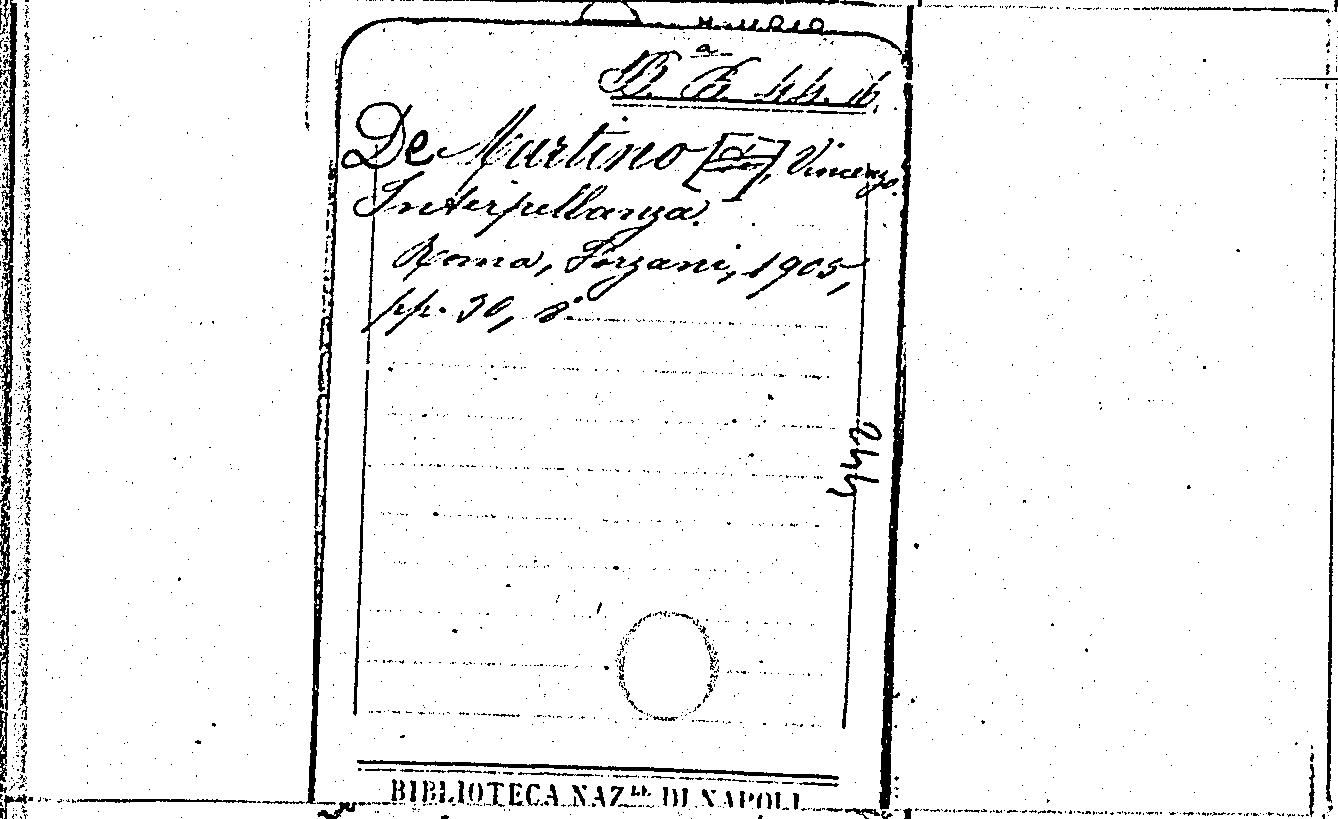 De Martino, Vincenzo.
Interpellanza.
Roma, Forzani, 1905,
pp. 30, 8°
BIBLIOTECA NAZ.LE DI NAPOLI